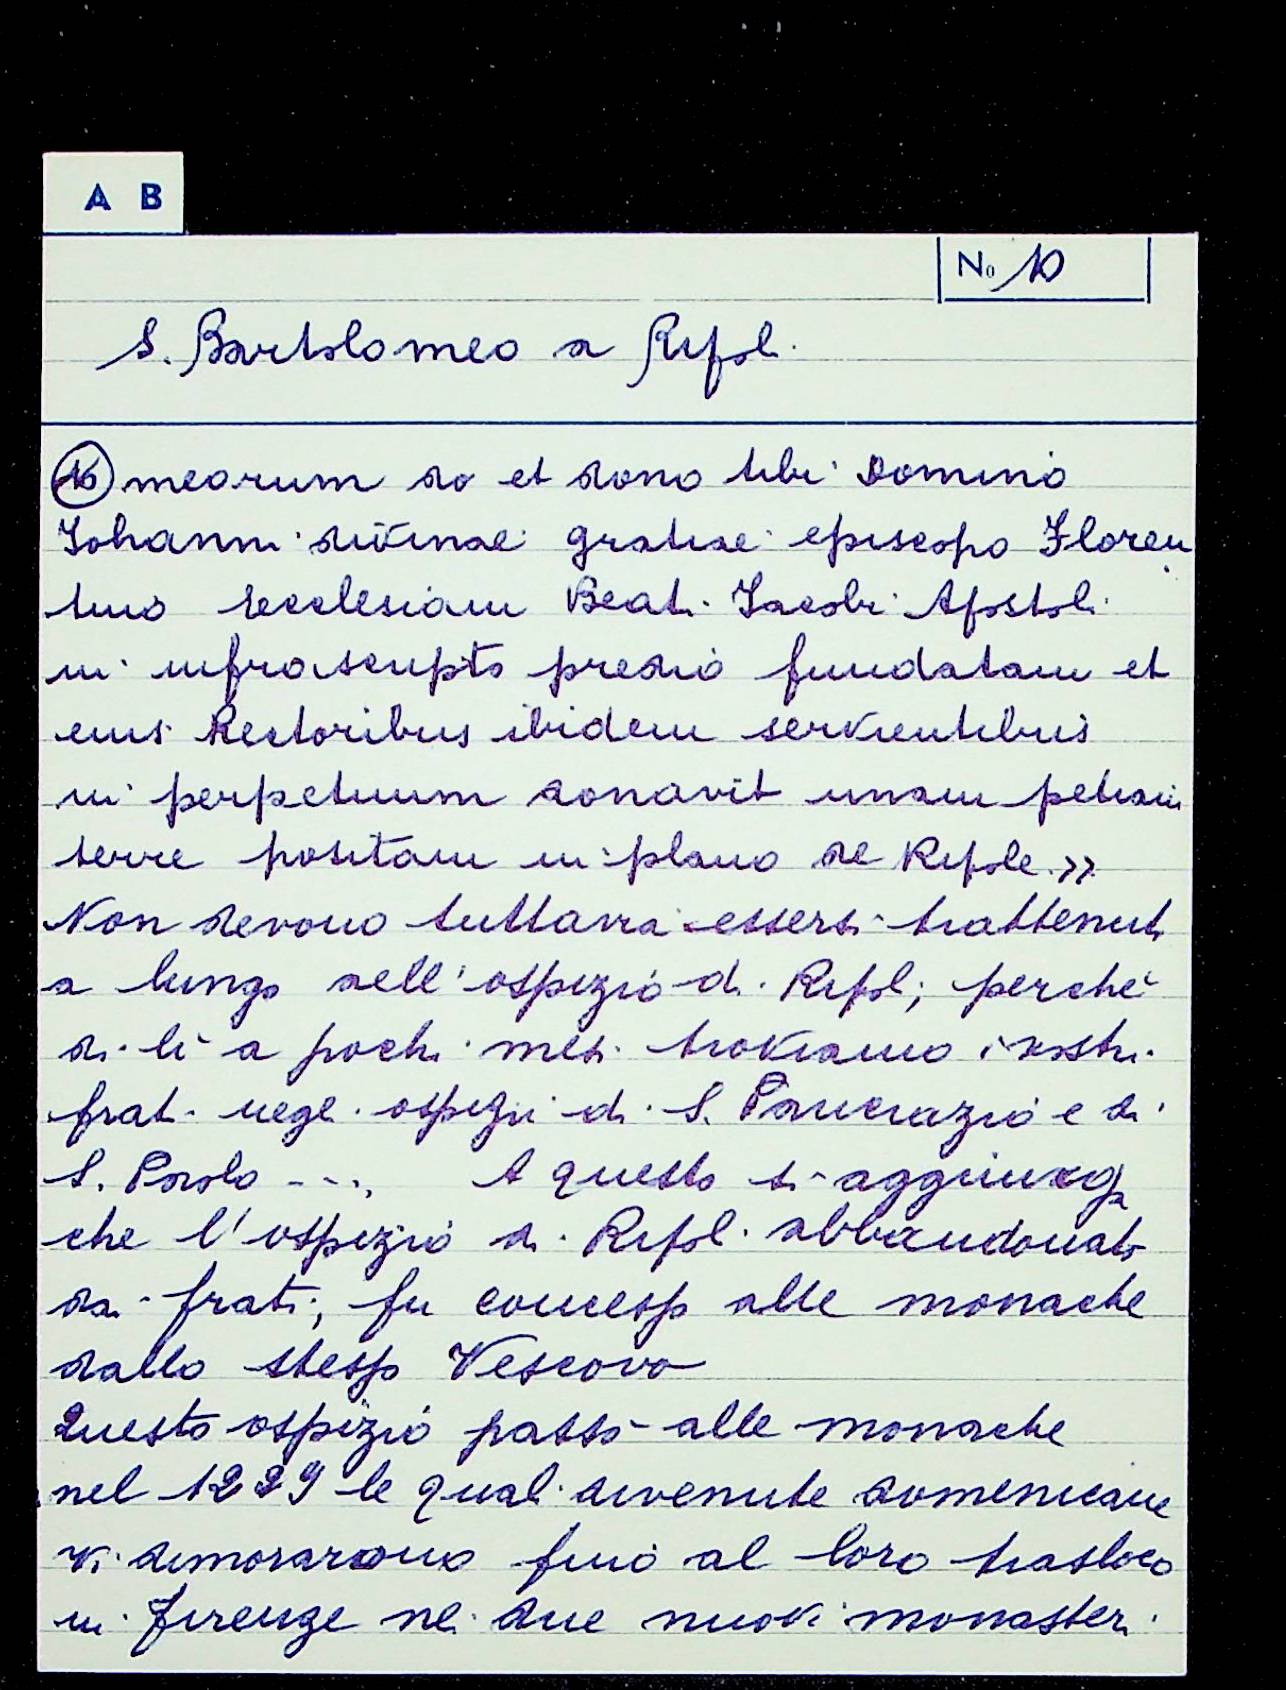 A B
No 10
S. Bartolomeo a Ripoli
16 meorum do et dono tibi Domino
Iohanni divinae gratiae episcopo Floren
tino ecclesiam Beati Jacobi Apostoli
in infrascripto predio fundatam et
eius Rectoribus ibidem servientibus
in perpetuum donavit unam petiam
terre positam in plano de Ripole.»
Non devono tuttavia essersi trattenuti
a lungo nell'ospizio di Ripoli; perché
di lì a pochi mesi troviamo i nostri
frati negli ospizii di S. Pancrazio e di
S. Paolo ---. A questo si aggiunga
che l'ospizio di Ripoli abbandonato
dai frati, fu concesso alle monache
dallo stesso Vescovo
Questo ospizio passò alle monache
nel 1229 le quali divenute domenicane
vi dimorarono fino al loro trasloco
in Firenze nei due nuovi monasteri